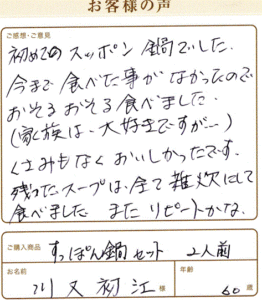 お客様の声
ご感想・ご意見
初めてのスッポン鍋でした。
今まで食べた事がなかったので
おそるおそる食べました。
(家族は、大好きですが…)
くさみもなくおいしかったです。
残ったスープは、全て雑炊にして
食べました またリピートかな。
ご購入商品 すっぽん鍋セット 2人前
お名前 川又初江 様 年齢 60 歳